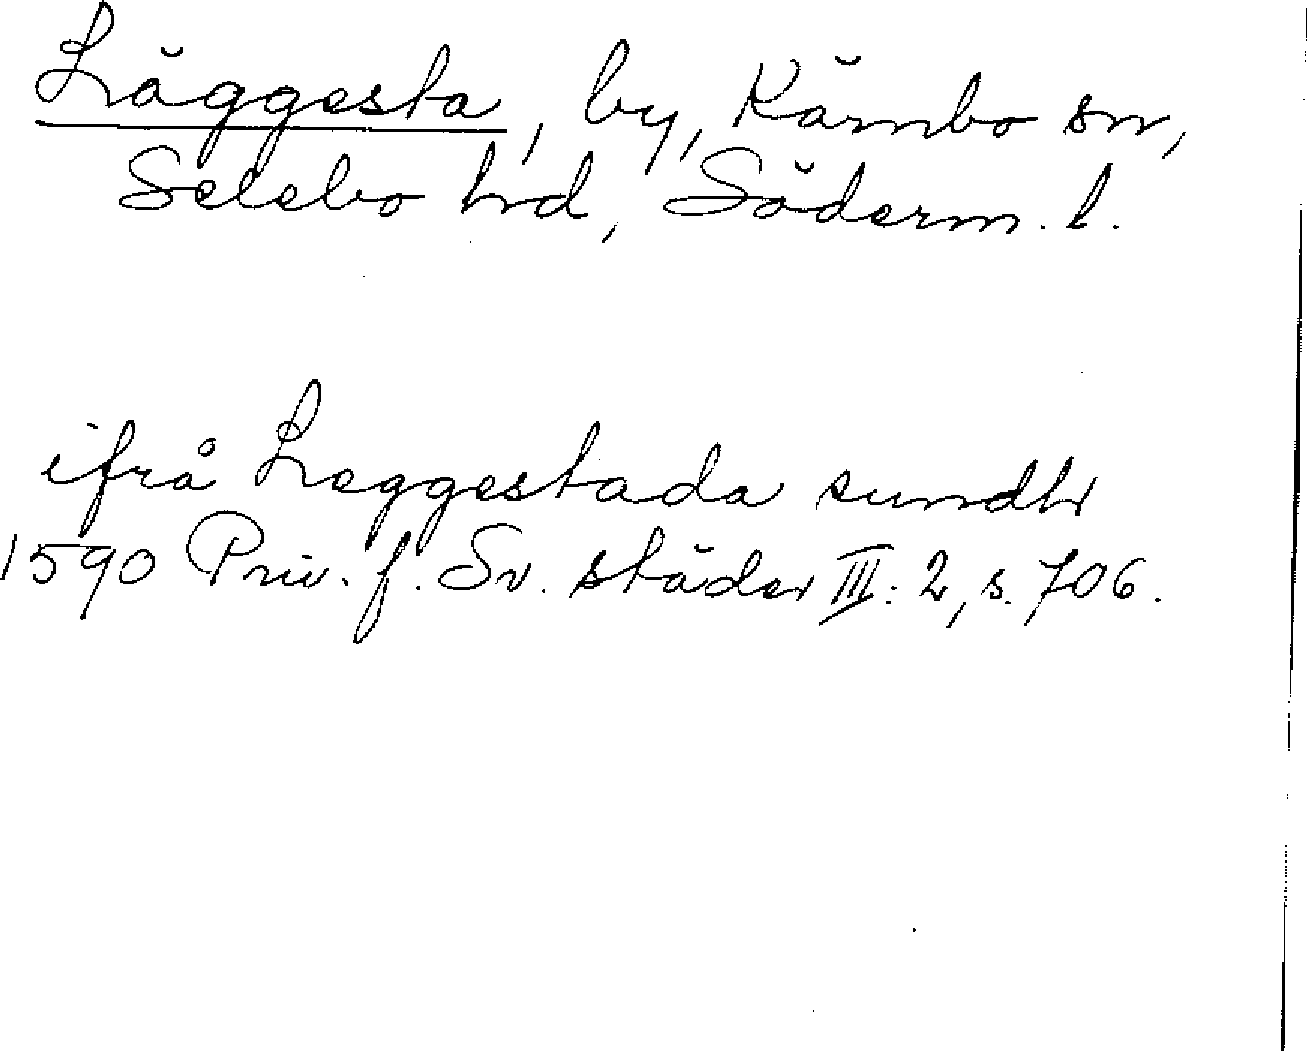 Läggesta, by, Kärnbo sn,
Selebo hd, Söderm. l.
ifrå Leggestada sundh
1590 Priv. f. Sv. städer III: 2, s. 706.